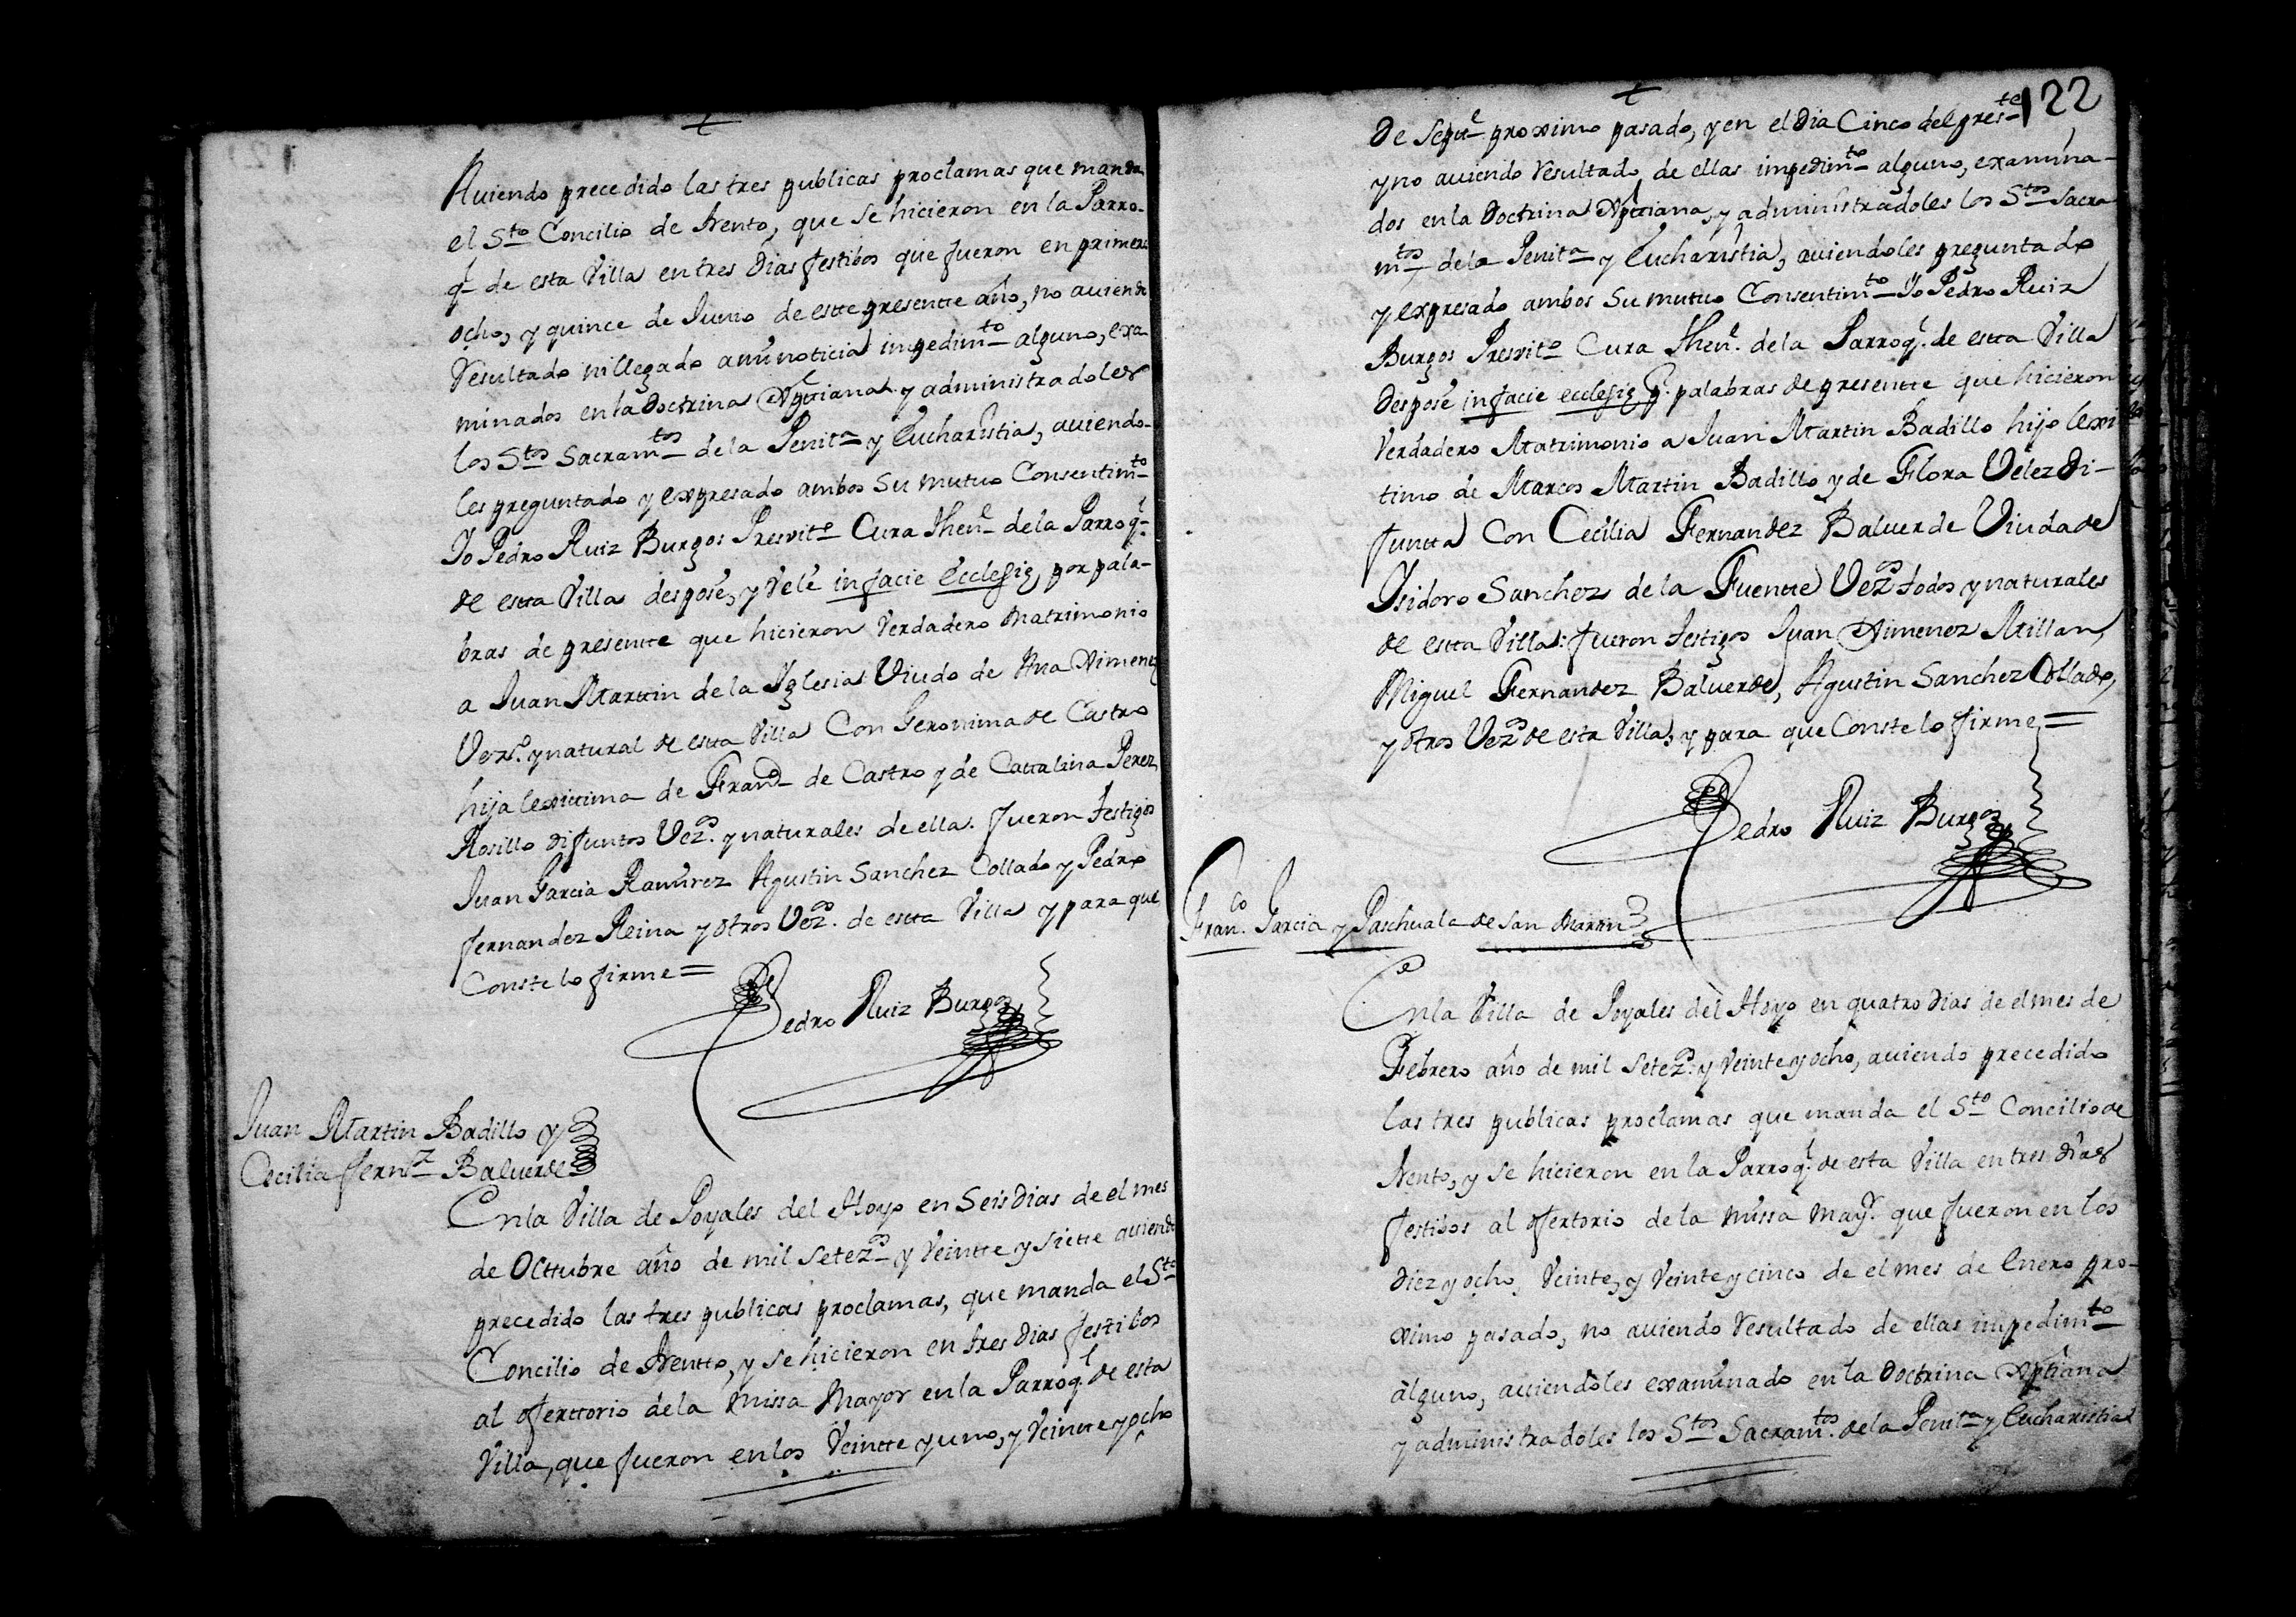 Auiendo precedido las tres publicas proclamas que manda
el Sto Concilio de trento, que se hicieron en la Parro-
ql de esta Villa en tres dias festibos que fueron en primero
ocho, y quince de Junio de este presentte año, no auiendo
resultado ni llegado a mi noticia impedimto alguno, exa
minados en la doctrina Xptiana y administradoles
los Stos Sacramtos de la Penita y Eucharistia, auiendo-
les preguntado y expresado ambos su mutuo Consentimto
Yo Pedro Ruiz Burgos Presvito Cura thene de la Parroql
de estta Villa despose, y vele in facie ecclesie, por pala-
bras de presentte que hicieron verdadero Matrimonio
a Juan Marttin de la Yglesia Viudo de Ana Ximenez
Vezo. y natural de estta Villa Con Geronima de Castro
hija lexittima de Franco de Castro y de Cattalina Perez
Rosillo difuntos Vezos. y naturales de ella. fueron testigos
Juan Garcia Ramirez Agustin Sanchez Collado y Pedro
fernandez Reina y otros Vezos. de estta Villa y para que
Conste lo firme =
Pedro Ruiz Burgos
Juan Martin Badillo y
Cecilia fernz Baluerde
En la Villa de Poyales del Hoyo en Seis dias de el mes
de Octtubre año de mil setezos y veintte y siette auiendo
precedido las tres publicas proclamas, que manda el Sto
Concilio de trentto, y se hicieron en tres dias festibos
al oferttorio de la missa Mayor en la Parroql. de esta
Villa, que fueron en los Veintte y uno, y Veintte y ocho
122
de Sepe proximo pasado, y en el dia Cinco del preste
y no auiendo resultado de ellas impedimto alguno, examina-
dos en la Doctrina Xptiana, y administradoles los Stos Sacra
mtos de la Penita y Eucharistia, auiendoles preguntado
y expresado ambos su mutuo Consentimto Yo Pedro Ruiz
Burgos Presvito Cura thene. de la Parroql. de estta Villa
despose in facie ecclesie p. palabras de presentte que hicieron
verdadero Matrimonio a Juan Martin Badillo hijo lexi
timo de Marcos Martin Badillo y de Flora Velez di-
funtta Con Cecilia Fernandez Baluerde Viuda de
Ysidoro Sanchez de la Fuentte Vezos todos y naturales
de estta Villa: fueron testigos Juan Ximenez Millan,
Miguel Fernandez Baluerde, Agustin Sanchez Collado,
y otros Vezos de esta Villa, y para que Conste lo firme =
Pedro Ruiz Burgos
Franco. Garcia y Paschuala de San Martin
En la Villa de Poyales del Hoyo en quatro dias de el mes de
Febrero año de mil Setezos. y Veinte y ocho, auiendo precedido
las tres publicas proclamas que manda el Sto Concilio de
trento, y se hicieron en la Parroql. de esta Villa en tres dias
festibos al ofertorio de la missa mayr. que fueron en los
diez y ocho, Veinte, y Veinte y cinco de el mes de Enero pro-
ximo pasado, no auiendo resultado de ellas impedimto
alguno, auiendoles examinado en la Doctrina Xptiana
y administradoles los Stos Sacramtos. de la Penita y Eucharistia